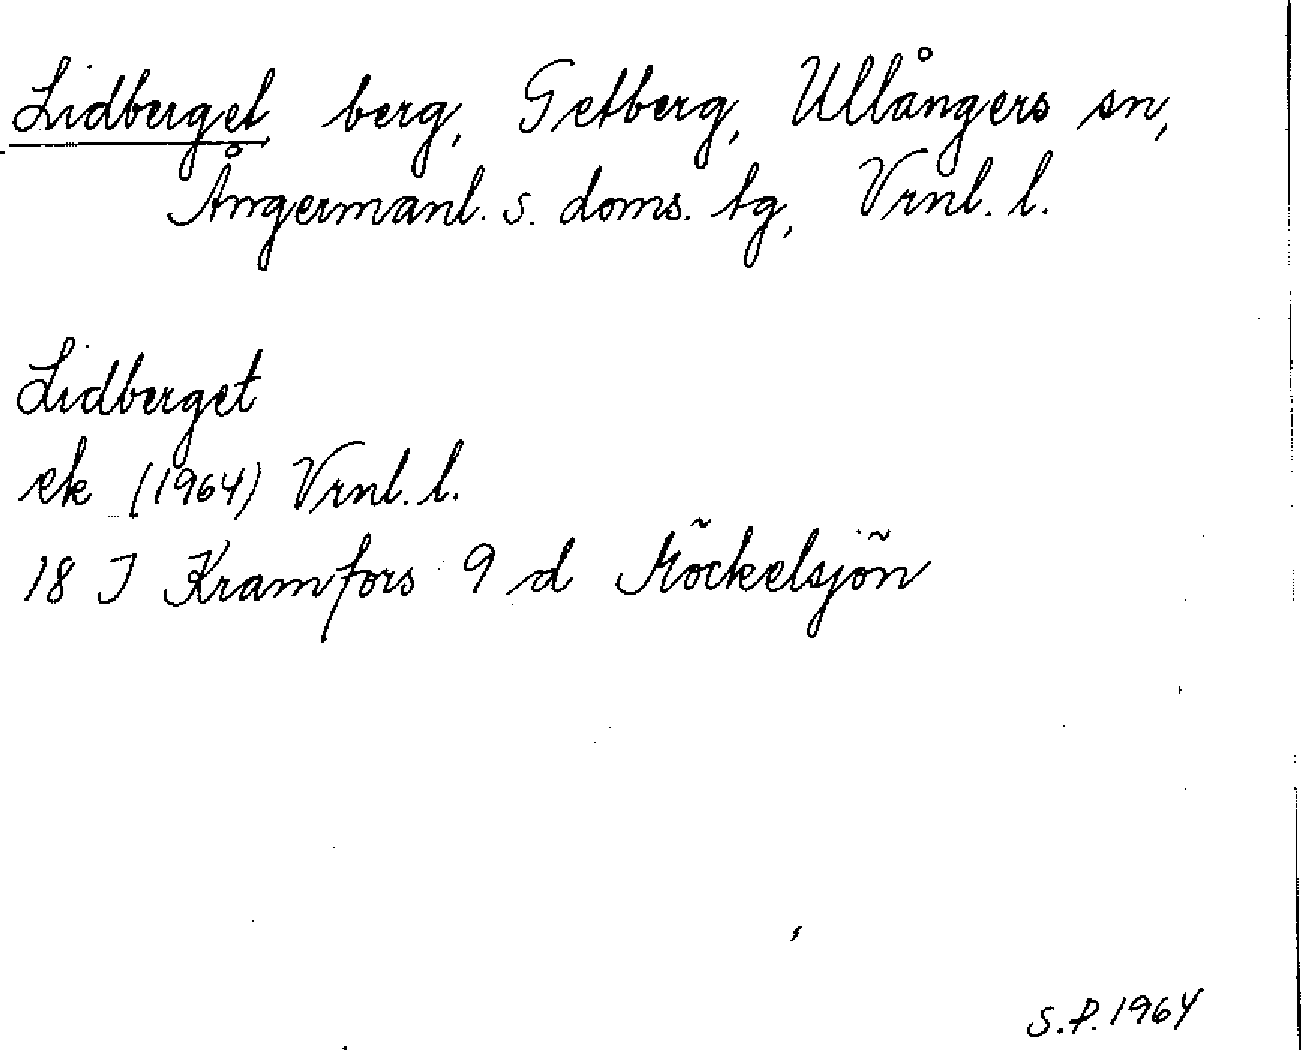 Lidberget, berg, Getberg, Ullångers sn,
Ångermanl. s. doms. tg, Vrnl. l.
Lidberget
ek (1964) Vrnl. l.
18 I Kramfors 9 d Möckelsjön
S.P. 1964